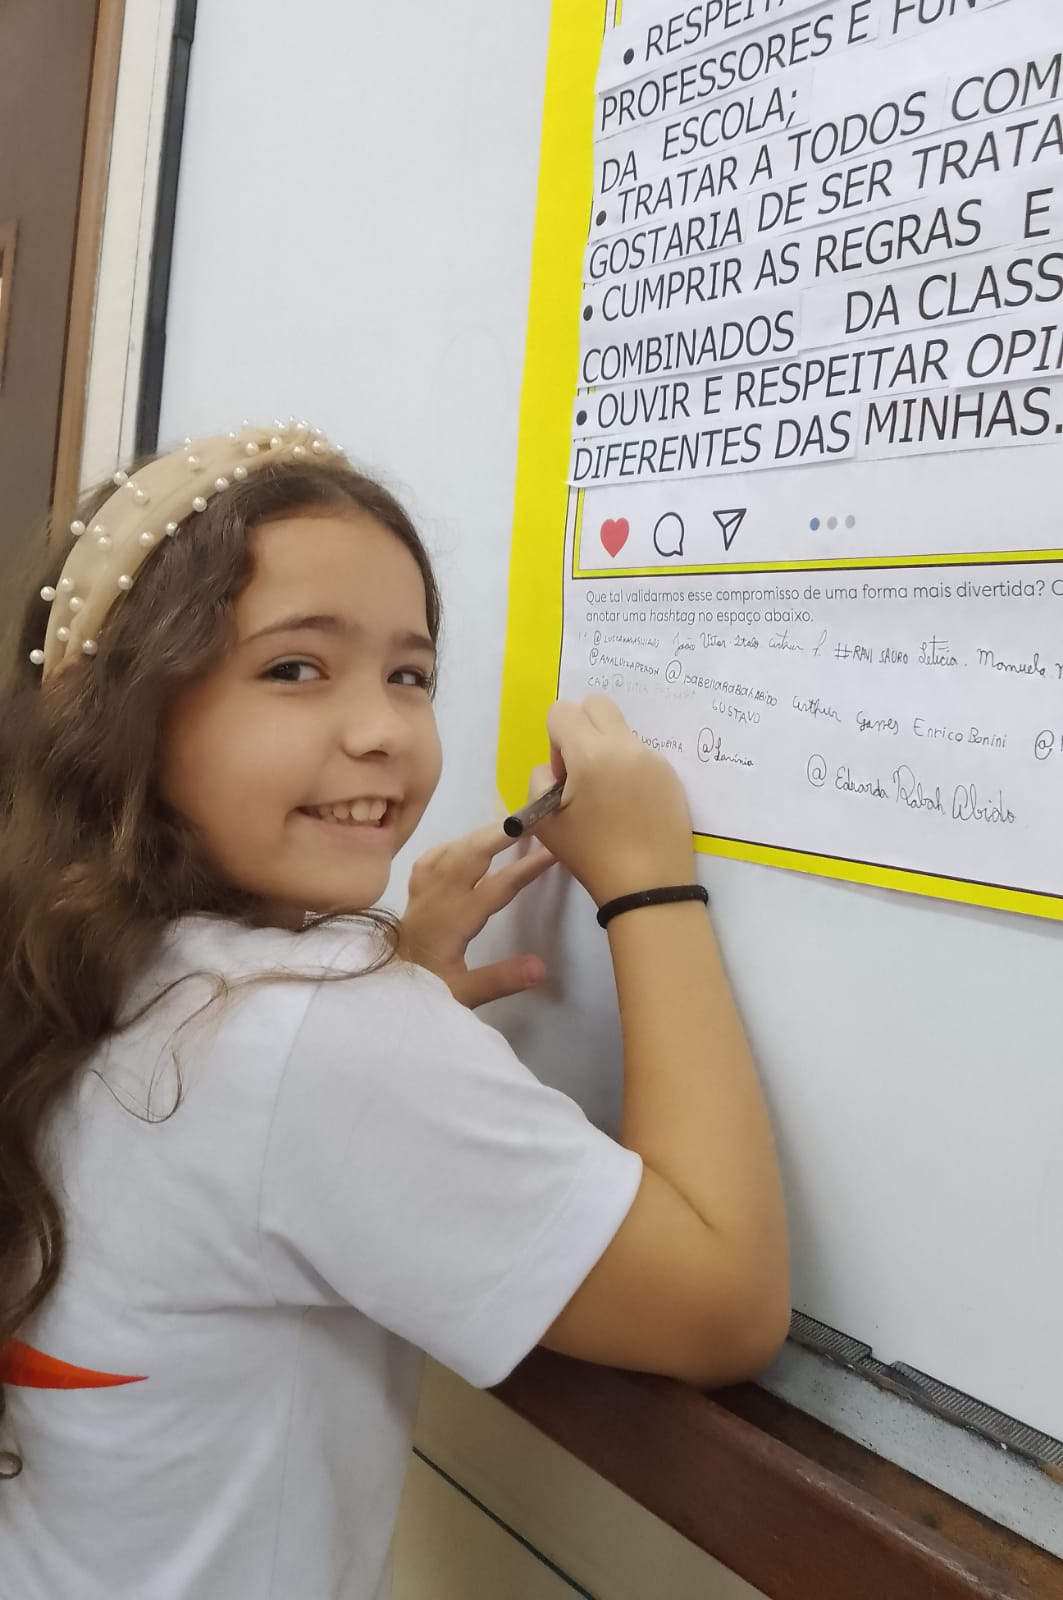 • RESPEIT
PROFESSORES E FUN
DA ESCOLA;
• TRATAR A TODOS COM
GOSTARIA DE SER TRATA
• CUMPRIR AS REGRAS E
COMBINADOS DA CLASS
• OUVIR E RESPEITAR OPI
DIFERENTES DAS MINHAS.
Que tal validarmos esse compromisso de uma forma mais divertida? C
anotar uma hashtag no espaço abaixo.
João Vitor #RAVI SAURO Letícia. Manuela
@ANALUIZAPERON @ISABELLARABAHABIDO Arthur Enrico Bonini @
CAIO GUSTAVO
NOGUEIRA @Lavínia @ Eduarda Rabah Abido